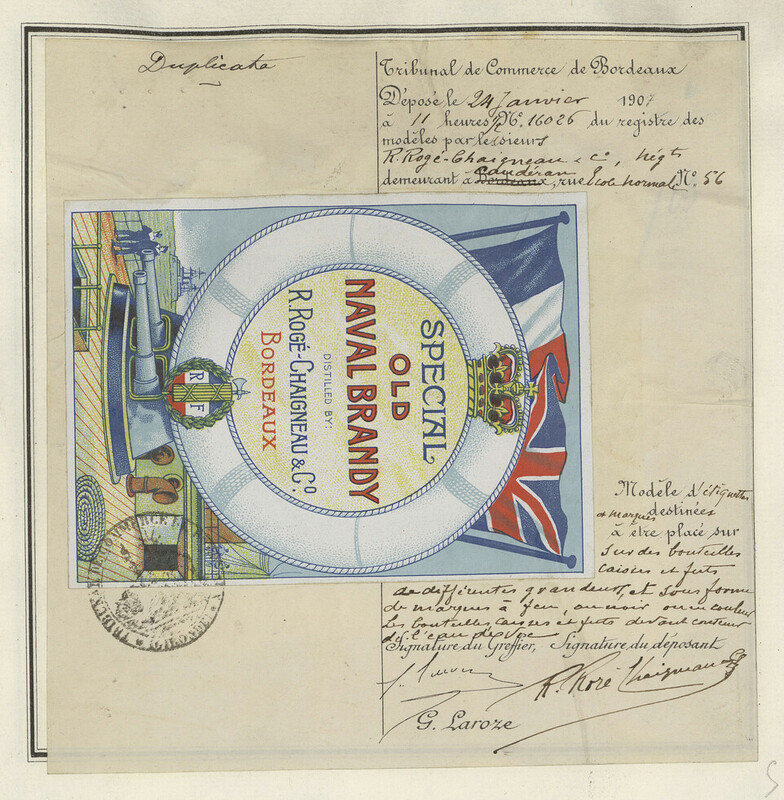 Duplicata
Tribunal de Commerce de Bordeaux
Déposé le 24 Janvier 1907
à 11 heures N° 16026 du registre des
modèles par les sieurs
R. Rogé-Chaigneau & Cº, négts
demeurant à Caudéran, rue Ecole normale N° 56
SPECIAL
OLD
NAVAL BRANDY
DISTILLED BY:
R. ROGÉ-CHAIGNEAU & Cº
BORDEAUX
R F
Modèle d'étiquettes
& marques destinées
à être placé sur
sur des bouteilles
caisses et futs
de différentes grandeurs, et sous forme
de marques à feu, au noir ou en couleur
les bouteilles, caisses et futs devant contenir
de l'eau de vie
Signature du Greffier, Signature du déposant
R. Rogé Chaigneau
G. Laroze